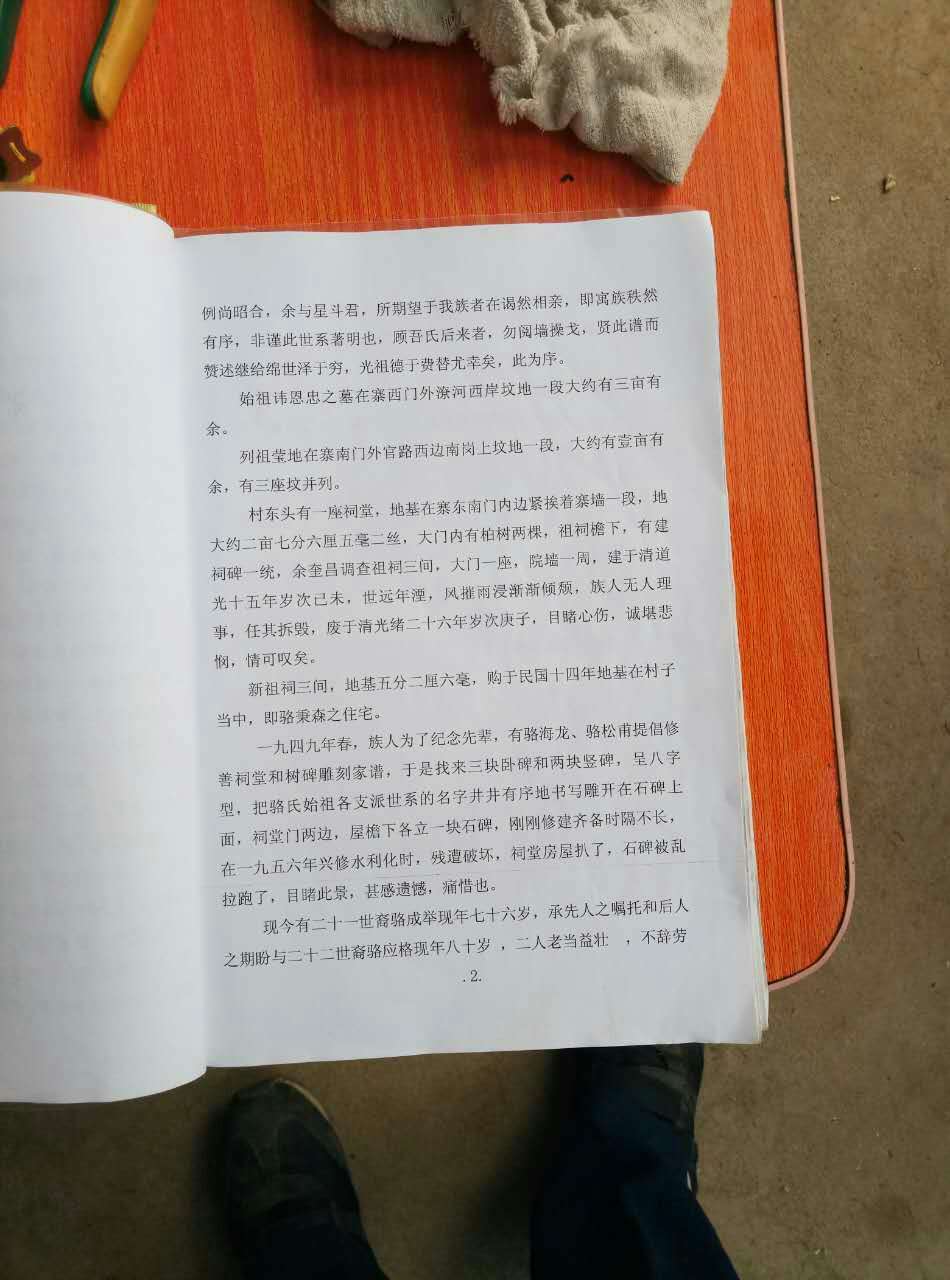 例尚昭合，余与星斗君，所期望于我族者在谒然相亲，即寓族秩然
有序，非谨此世系著明也，顾吾氏后来者，勿阋墙操戈，贤此谱而
赞述继给绵世泽于穷，光祖德于费替尤幸矣，此为序。
始祖讳恩忠之墓在寨西门外潦河西岸坟地一段大约有三亩有
余。
列祖莹地在寨南门外官路西边南岗上坟地一段，大约有壹亩有
余，有三座坟并列。
村东头有一座祠堂，地基在寨东南门内边紧挨着寨墙一段，地
大约二亩七分六厘五毫二丝，大门内有柏树两棵，祖祠檐下，有建
祠碑一统，余奎昌调查祖祠三间，大门一座，院墙一周，建于清道
光十五年岁次已未，世远年湮，风摧雨浸渐渐倾颓，族人无人理
事，任其拆毁，废于清光绪二十六年岁次庚子，目睹心伤，诚堪悲
悯，情可叹矣。
新祖祠三间，地基五分二厘六毫，购于民国十四年地基在村子
当中，即骆秉森之住宅。
一九四九年春，族人为了纪念先辈，有骆海龙、骆松甫提倡修
善祠堂和树碑雕刻家谱，于是找来三块卧碑和两块竖碑，呈八字
型，把骆氏始祖各支派世系的名字井井有序地书写雕开在石碑上
面，祠堂门两边，屋檐下各立一块石碑，刚刚修建齐备时隔不长，
在一九五六年兴修水利化时，残遭破坏，祠堂房屋扒了，石碑被乱
拉跑了，目睹此景，甚感遗憾，痛惜也。
现今有二十一世裔骆成举现年七十六岁，承先人之嘱托和后人
之期盼与二十二世裔骆应格现年八十岁 ，二人老当益壮 ，不辞劳
.2.